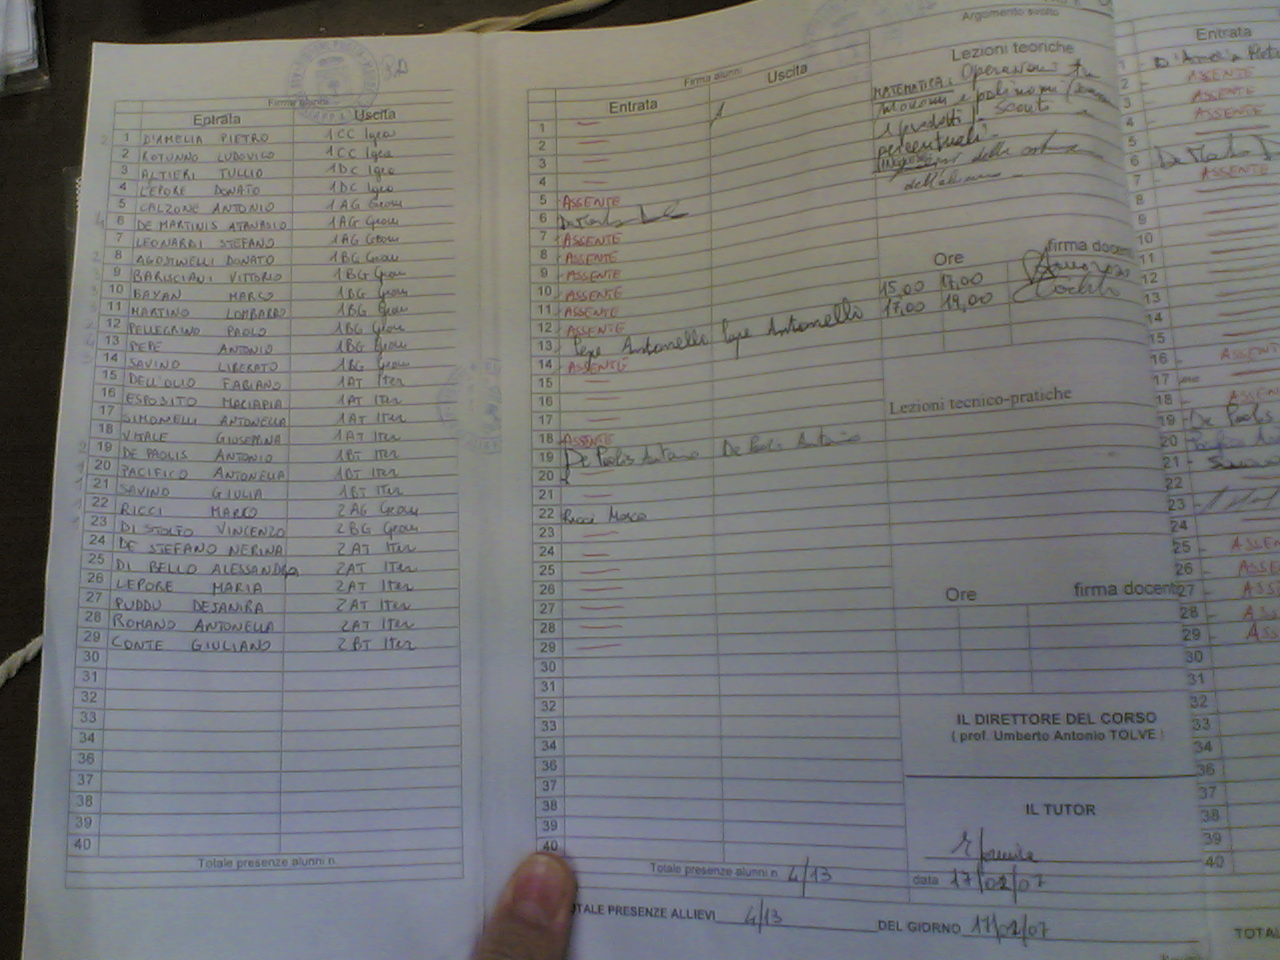 Firma alunni
Entrata Uscita
1 D'AMELIA PIETRO 1CC Igea
2 ROTUNNO LUDOVICO 1CC Igea
3 ALTIERI TULLIO 1DC Igea
4 LEPORE DONATO 1DC Igea
5 CALZONE ANTONIO 1AG Geom
6 DE MARTINIS ATANASIO 1AG Geom
7 LEONARDI STEFANO 1AG Geom
8 AGOSTINELLI DONATO 1BG Geom
9 BARUCIANI VITTORIO 1BG Geom
10 BAYAN MARCO 1BG Geom
11 MARTINO LOMBARDO 1BG Geom
12 PELLEGRINO PAOLO 1BG Geom
13 PEPE ANTONIO 1BG Geom
14 SAVINO LIBERATO 1BG Geom
15 DELL'OLIO FABIANO 1AT Iter
16 ESPOSITO MACIAPIA 1AT Iter
17 SIMONELLI ANTONELLA 1AT Iter
18 VITALE GIUSEPPINA 1AT Iter
19 DE PAOLIS ANTONIO 1BT Iter
20 PACIFICO ANTONELLA 1BT Iter
21 SAVINO GIULIA 1BT Iter
22 RICCI MARCO 2AG Geom
23 DI STOLFO VINCENZO 2BG Geom
24 DE STEFANO NERINA 2AT Iter
25 DI BELLO ALESSANDRA 2AT Iter
26 LEPORE MARIA 2AT Iter
27 PUDDU DEJANIRA 2AT Iter
28 ROMANO ANTONELLA 2AT Iter
29 CONTE GIULIANO 2BT Iter
30
31
32
33
34
36
37
38
39
40
Totale presenze alunni n.
Firma alunni
Entrata Uscita
1
2
3
4
5 ASSENTE
6
7 ASSENTE
8 ASSENTE
9 ASSENTE
10 ASSENTE
11 ASSENTE
12 ASSENTE
13 Pepe Antonello Pepe Antonello
14 ASSENTE
15
16
17
18 ASSENTE
19 De Paolis Antonio De Paolis Antonio
20
21
22 Ricci Marco
23
24
25
26
27
28
29
30
31
32
33
34
36
37
38
39
40
Totale presenze alunni n. 4/13
TALE PRESENZE ALLIEVI 4/13
Argomento svolto
Lezioni teoriche
MATEMATICA: Operazioni tra
monomi e polinomi
e prodotti - Sconti
percentuali -
Ore firma docente
15,00 17,00
17,00 19,00
Lezioni tecnico-pratiche
Ore firma docente
IL DIRETTORE DEL CORSO
( prof. Umberto Antonio TOLVE )
IL TUTOR
data 17/02/07
DEL GIORNO 17/02/07
Entrata
1 D'Amelia Pietro
2 ASSENTE
3 ASSENTE
4 ASSENTE
5
6
7 ASSENTE
8
9
10
11
12
13
14
15
16 ASSENT
17
18 ASSEN
19 De Paolis
20 Pacifico
21
22
23
24
25 ASSEN
26 ASSE
27 ASS
28 ASS
29 ASS
30
31
32
33
34
36
37
38
39
40
TOTAL